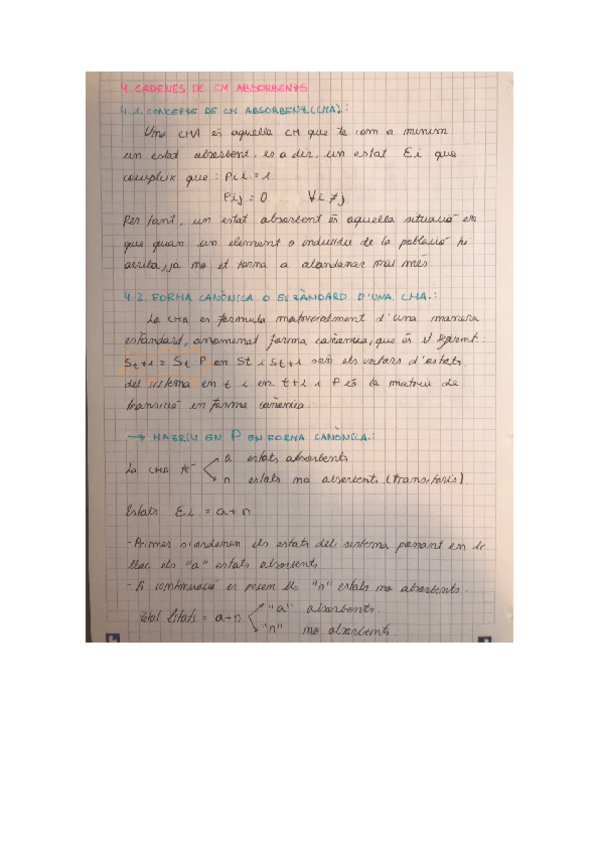 4. CADENES DE CM ABSORBENTS
4.1. CONCEPTE DE CM ABSORBENT (CMA).:
Una CMA és aquella CM que té com a minim
un estat absorbent, és a dir, un estat Ei que
compleix que: Pii = 1
Pij = 0 ∀i ≠ j
Per tant, un estat absorbent és aquella situació en
que quan un element o individu de la població hi
arriba, ja no et torna a abandonar mai més
4.2. FORMA CANÒNICA O ESTÀNDARD D'UNA CMA.:
La CMA es formula matricialment d'una manera
estàndard, anomenat forma canònica, que és el següent:
St+1 = St P en St i St+1 són els vectors d'estats
del sistema en t i en t+1 i P és la matriu de
transició en forma canònica
→ MATRIU EN P EN FORMA CANÒNICA.:
La CMA té a estats absorbents
n estats no absorbents (transitoris)
Estats Ei = a+n
- Primer s'ordenen els estats del sistema posant en 1r
lloc els "a" estats absorbents
- A continuació es posem els "n" estats no absorbents.
Total Estats = a+n "a" absorbents
"n" no absorbents.